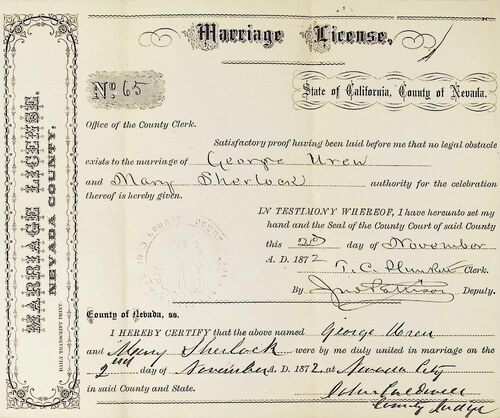 Marriage License,
No. 65
State of California, County of Nevada.
MARRIAGE LICENSE.
NEVADA COUNTY.
DAILY TRANSCRIPT PRINT.
Office of the County Clerk.
Satisfactory proof having been laid before me that no legal obstacle
exists to the marriage of George Uren
and Mary Sherlock authority for the celebration
thereof is hereby given.
IN TESTIMONY WHEREOF, I have hereunto set my
hand and the Seal of the County Court of said County
this 2nd day of November
A. D. 1872
T. C. Plunkett Clerk.
By Jno Pattison Deputy.
County of Nevada, ss.
I HEREBY CERTIFY that the above named George Uren
and Mary Sherlock were by me duly united in marriage on the
2nd day of November A. D. 1872, at Nevada City
in said County and State.
John Caldwell
County Judge